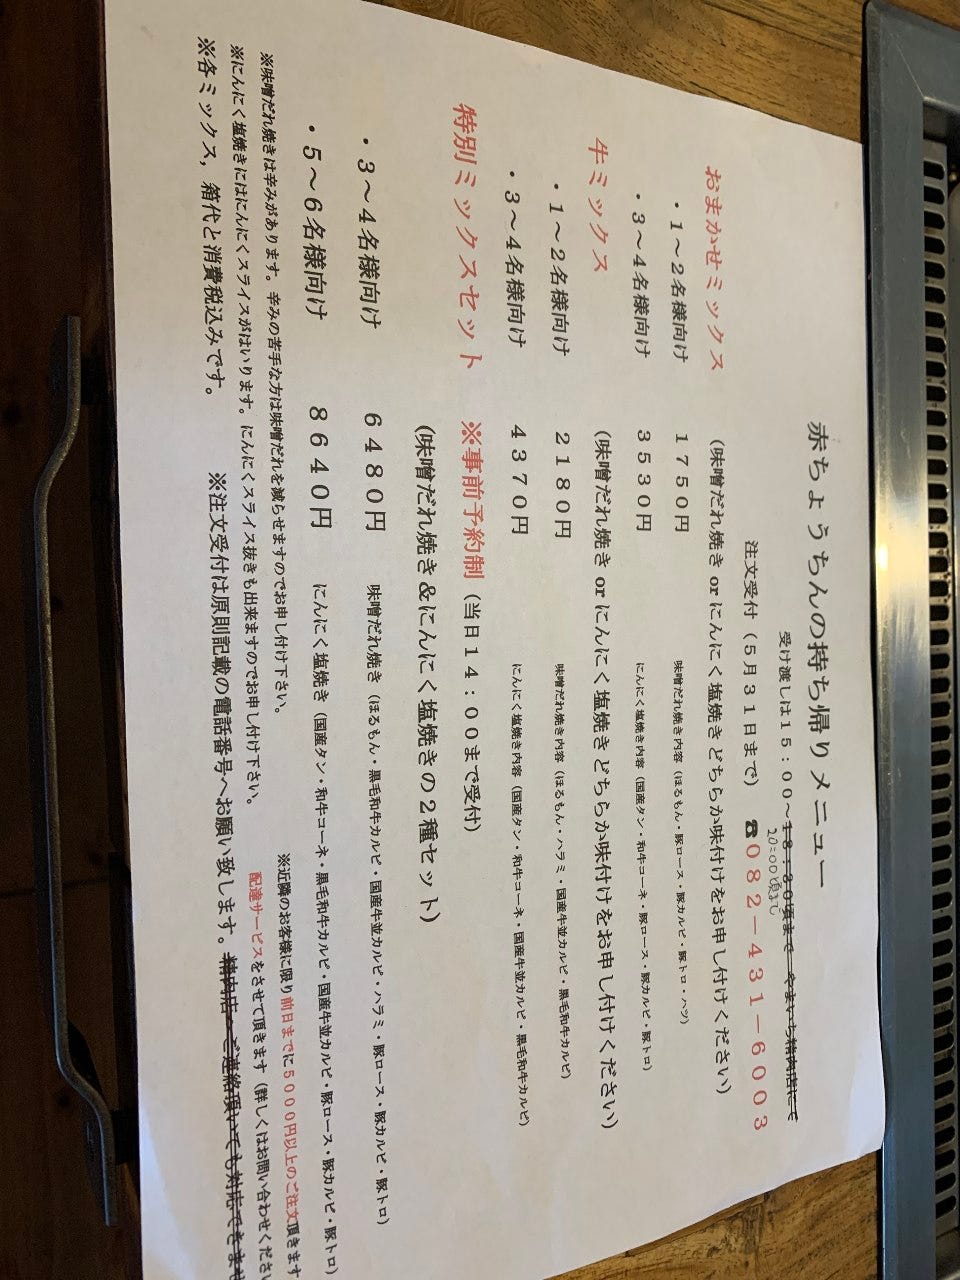 赤ちょうちんの持ち帰りメニュー
受け渡しは１５：００～１８：３０頃まで　やまいち精肉店にて
20:00頃まで
注文受付（５月３１日まで）　☎０８２－４３１－６００３
おまかせミックス　（味噌だれ焼き or にんにく塩焼き どちらか味付けをお申し付けください）
・１～２名様向け　１７５０円　味噌だれ焼き内容（ほるもん・豚ロース・豚カルビ・豚トロ・ハツ）
・３～４名様向け　３５３０円　にんにく塩焼き内容（国産タン・和牛コーネ・豚ロース・豚カルビ・豚トロ）
牛ミックス　（味噌だれ焼き or にんにく塩焼き どちらか味付けをお申し付けください）
・１～２名様向け　２１８０円　味噌だれ焼き内容（ほるもん・ハラミ・国産牛並カルビ・黒毛和牛カルビ）
・３～４名様向け　４３７０円　にんにく塩焼き内容（国産タン・和牛コーネ・国産牛並カルビ・黒毛和牛カルビ）
特別ミックスセット　※事前予約制（当日１４：００まで受付）
（味噌だれ焼き＆にんにく塩焼きの２種セット）
・３～４名様向け　６４８０円　味噌だれ焼き（ほるもん・黒毛和牛カルビ・国産牛並カルビ・ハラミ・豚ロース・豚カルビ・豚トロ）
・５～６名様向け　８６４０円　にんにく塩焼き（国産タン・和牛コーネ・黒毛和牛カルビ・国産牛並カルビ・豚ロース・豚カルビ・豚トロ）
※味噌だれ焼きは辛みがあります。辛みの苦手な方は味噌だれを減らせますのでお申し付け下さい。
※にんにく塩焼きにはにんにくスライスがはいります。にんにくスライス抜きも出来ますのでお申し付け下さい。
※近隣のお客様に限り前日までに５０００円以上のご注文頂きます
配達サービスをさせて頂きます（詳しくはお問い合わせくださ
※各ミックス，箱代と消費税込みです。　※注文受付は原則記載の電話番号へお願い致します。精肉店へご連絡頂いても対応できませ